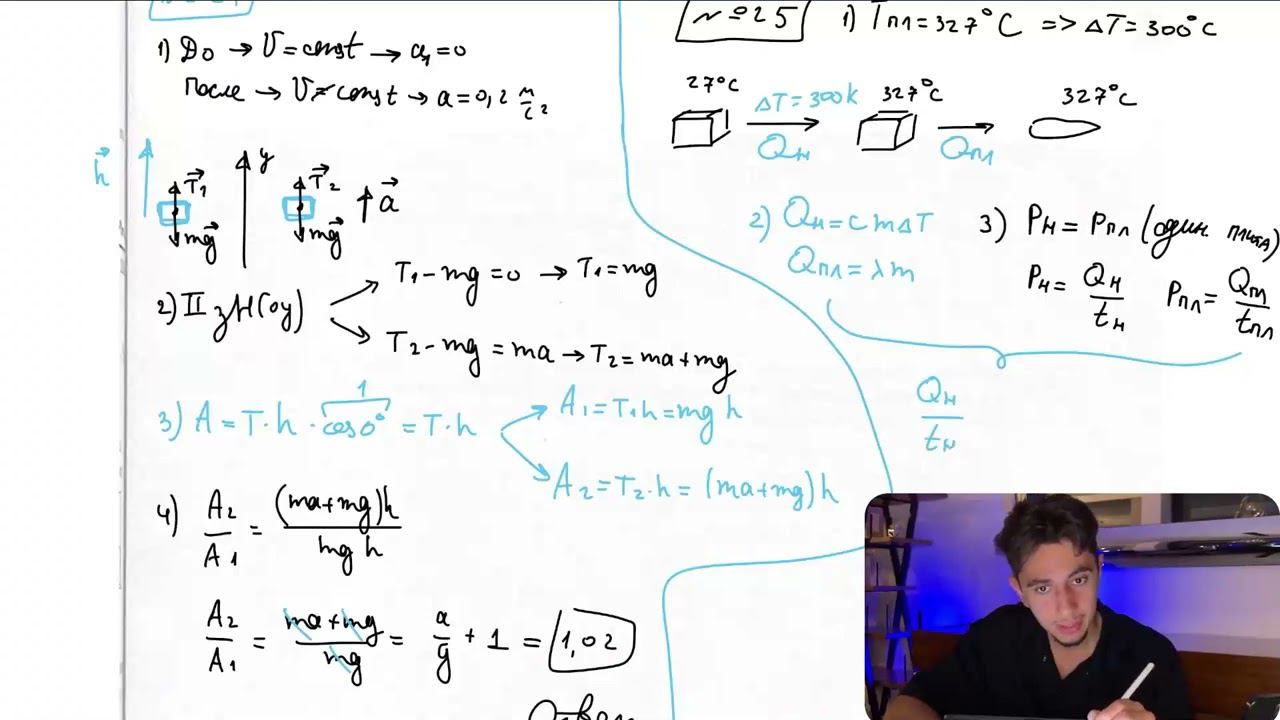 1) До → V = const → a₁ = 0
После → V ≠ const → a = 0,2 м/с²
h⃗
T⃗₁
mg⃗
y
T⃗₂
mg⃗
a⃗
2) II зН(оу)
T₁ − mg = 0 → T₁ = mg
T₂ − mg = ma → T₂ = ma + mg
3) A = T · h · cos0° = T · h
1
A₁ = T₁h = mg h
A₂ = T₂·h = (ma + mg)h
4) A₂/A₁ = (ma + mg)h / mg h
A₂/A₁ = ma + mg / mg = a/g + 1 = 1,02
№25
1) Tпл = 327°C => ΔT = 300°C
27°C
ΔT = 300k
Qн
327°C
Qпл
327°C
2) Qн = c m ΔT
Qпл = λ m
3) Pн = Pпл (один. плита)
Pн = Qн/tн Pпл = Qпл/tпл
Qн/tн